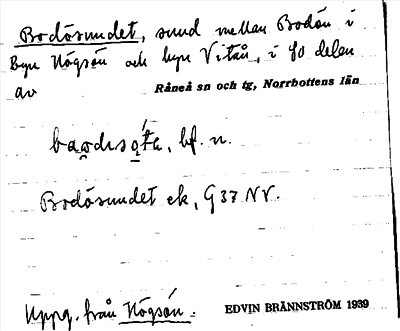 Bodösundet, sund mellan Bodön i
byn Högsön och byn Vitån, i sö delen
av Råneå sn och tg, Norrbottens län
bf. n.
Bodösundet ek, G 37 NV.
Uppg. från Högsön. EDVIN BRÄNNSTRÖM 1939